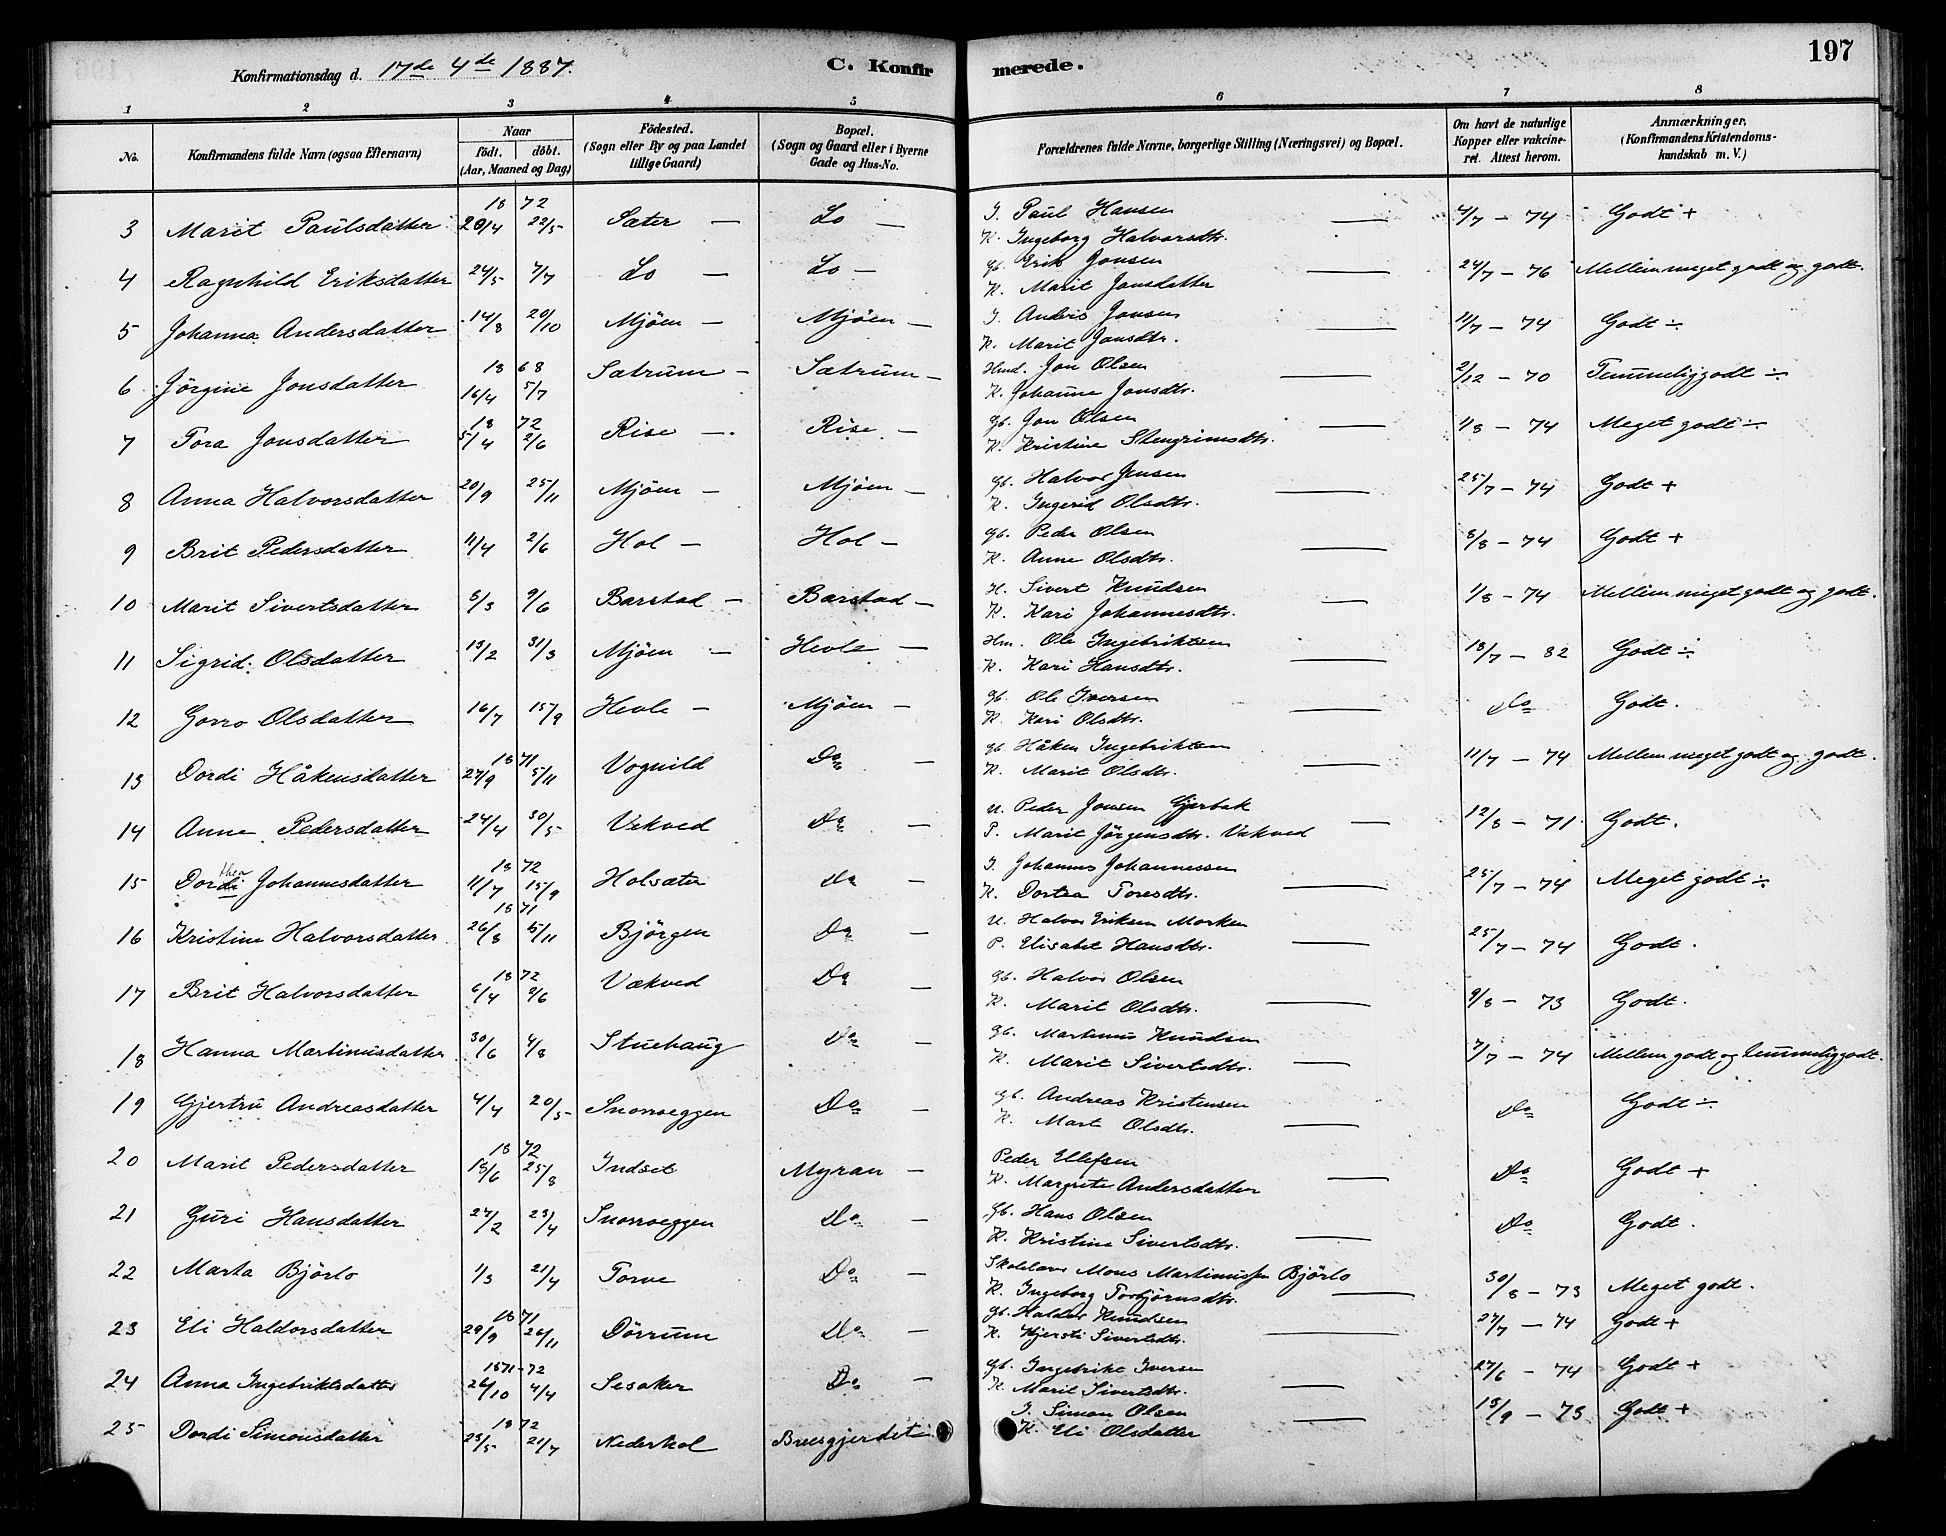 Konfirmationsdag d. 17de 4de 1887. C. Konfirmerede. 197
1 2 3 4 5 6 7 8
No. Konfirmandens fulde Navn (ogsaa Efternavn) Naar födt. döbt. (Aar, Maaned og Dag) Födested. (Sogn eller By og paa Landet tillige Gaard) Bopæl. (Sogn og Gaard eller i Byerne Gade og Hus-No. Forældrenes fulde Navne, borgerlige Stilling (Næringsvei) og Bopæl. Om havt de naturlige Kopper eller vakcineret. Attest herom. Anmærkninger, (Konfirmandens Kristendomskundskab m. V.)
18 72
3 Marit Paulsdatter 20/4 22/5 Sæter — Lo — I. Paul Hansen — 4/7 — 74 Godt +
K. Ingeborg Halvorsdtr.
4 Ragnhild Eriksdatter 24/5 7/7 Lo — Lo — gb. Erik Jonsen — 24/7 — 76 Mellem meget godt og godt.
K. Marit Jonsdatter
5 Johanna Andersdatter 14/8 20/10 Mjöen — Mjöen — I. Anders Jonsen — 11/7 — 74 Godt ÷
K. Marit Jonsdtr.
18 68
6 Jörgine Jonsdatter 16/4 5/7 Sætrum — Sætrum — Hmd. Jon Olsen — 2/12 — 70 Temmelig godt ÷
K. Johanne Jonsdtr.
18 72
7 Tora Jonsdatter 5/4 2/6 Rise — Rise — gb. Jon Olsen — 1/8 — 74 Meget godt ÷
K. Kristine Stengrimsdtr.
8 Anna Halvorsdatter 20/9 25/11 Mjöen — Mjöen — gb. Halvor Jensen — 25/7 — 74 Godt +
K. Ingerid Olsdtr.
9 Brit Pedersdatter 11/4 2/6 Hol — Hol — gb. Peder Olsen — 8/8 — 74 Godt +
K. Anne Olsdtr.
10 Marit Sivertsdatter 5/3 9/6 Barstad — Barstad — H. Sivert Knudsen — 1/8 — 74 Mellem meget godt og godt.
K. Kari Johannesdtr.
11 Sigrid Olsdatter 13/2 31/3 Mjöen — Hevle — Hm. Ole Ingebriktsen — 18/7 — 82 Godt ÷
K. Kari Hansdtr.
12 Gorro Olsdatter 16/7 15/9 Hevle — Mjöen — gb. Ole Iversen — Do Godt.
K. Kari Olsdtr.
18 71
13 Dordi Håkensdatter 27/9 5/11 Vognild Do — gb. Håken Ingebriktsen — 11/7 — 74 Mellem meget godt og godt.
K. Marit Olsdtr.
14 Anne Pedersdatter 24/4 30/5 Vekved Do — U. Peder Jonsen Gjerbak — 12/8 — 71 Godt.
P. Marit Jörgensdtr. Vekved
18 72
15 Dordi Johannesdatter 11/7 15/9 Holsæter Do — I. Johannes Johannessen — 25/7 — 74 Meget godt ÷
K. Dortea Toresdtr.
18 71
16 Kristine Halvorsdatter 26/8 5/11 Björgen Do — U. Halvor Eriksen Morken — 25/7 — 74 Godt.
P. Elisabet Hansdtr.
18 72
17 Brit Halvorsdatter 6/4 9/6 Vækved Do — gb. Halvor Olsen — 9/8 — 73 Godt.
K. Marit Olsdtr.
18 Hanna Martinusdatter 30/6 4/8 Stuehaug Do — gb. Martinus Knudsen — 7/7 — 74 Mellem godt og temmelig godt.
K. Marit Sivertsdtr.
19 Gjertru Andreasdatter 4/4 20/5 Snoroeggen Do — gb. Andreas Kristensen — Do Godt ÷
K. Mart Olsdtr.
18 72
20 Marit Pedersdatter 13/6 25/8 Indset Myran — Peder Ellefsen — Do Godt +
K. Margrete Andersdatter
21 Guri Hansdatter 27/2 23/4 Snoroeggen Do — gb. Hans Olsen — Do Godt.
K. Kristine Sivertsdtr.
22 Marta Björlo 1/3 21/4 Torve Do — Skolelærer Mons Martinussen Björlo 30/8 — 73 Meget godt.
K. Ingeborg Torbjörnsdtr.
18 71
23 Eli Haldorsdatter 29/9 26/11 Dörrum Do — gb. Haldor Knudsen — 27/7 — 74 Godt +
K. Kjersti Sivertsdtr.
1871-72
24 Anna Ingebriktsdatter 26/10 4/4 Sesaker Do — gb. Ingebrikt Iversen — 27/6 — 74 Godt +
K. Marit Sivertsdtr.
18 72
25 Dordi Simonsdatter 23/5 21/7 Nederhol Breesgjerdet I. Simon Olsen — 13/9 — 73 Godt +
K. Eli Olsdatter